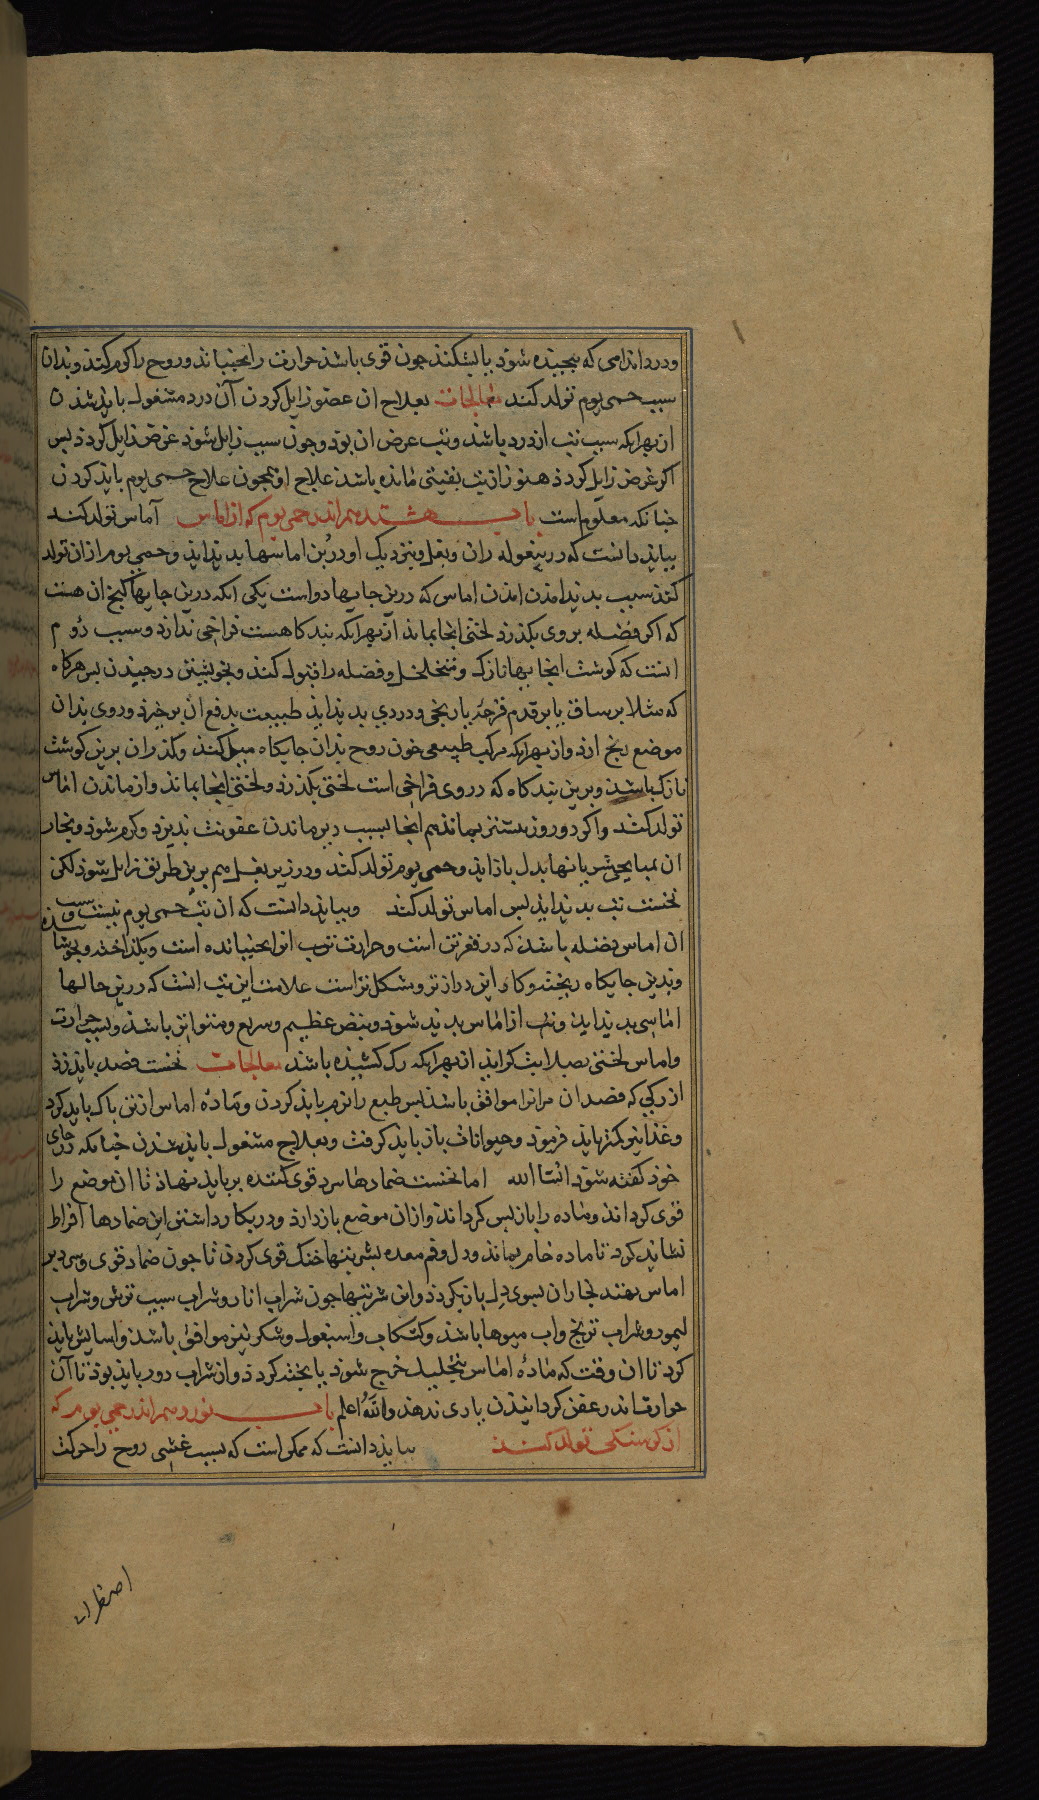 ودرد اندامی که پیچیده شود یا بشکند چون قوی باشد حرارت را بجنباند و روح را گرم کند و بدان
سبب حمی یوم تولد کند معالجات بعلاج ان عضو زایل کردن آن درد مشغول باید شدن
از بهر انکه سبب تب ان درد باشد و تب عرض ان بود و چون سبب زایل شود عرض زایل کردد پس
اکر عرض زایل کردد هنوز از تب بقیتی مانده باشد علاج او همچون علاج حمی یوم باید کردن
چنانکه معلوم است باب هشتدهم اندر حمی یوم که از اماس آماس تولد کند
بباید دانست که در بیغوله ران و بغل و نزدیک او در بن اماسها پدید اید و حمی یوم ازان تولد
کند سبب پدید امدن اماس که درین جایها دواست یکی انکه درین جایها کنج ان هست
که اکر فضله بروی بکذرد لختی انجا بماند از بهر انکه بندکاهست فراخی ندارد و سبب دوم
انست که کوشت انجایها نازک و متخلخل و فضله را قبول کند و بخویشتن درچیدن پس هرکاه
که مثلا بر ساق یا بر قدم قرحه یا رنجی و دردی پدید اید طبیعت بدفع ان برخیزد و روی بدان
موضع رنج ارد و از بهر انکه مرکب طبیعی خون روح بدان جایکاه میل کند و کذر ان برین کوشت
نازک باشد و برین بندکاه که در وی فراخی است لختی بکذرد و لختی انجا بماند و از ماندن اماس
تولد کند و اکر دو روز بیشتر بماند هم انجا بسبب دیر ماندن عفونت پذیرد و کرم شود و بخار
ان بمیانجی شریانها بدل باز اید و حمی یوم تولد کند و در زیر بغل هم برین طریق زایل شود لکن
نخست تب پدید اید پس اماس تولد کند و بباید دانست که ان تب حمی یوم نیست و سبب
ان اماس فضله باشد که در قعر تن است و حرارت تب انرا بجنبانده است و بکداخته و بجوشانده
و بدین جایکاه ریخته و کار این درازتر و مشکل تر است علامت این تب انست که درین حالها
اماسی پدید اید و تب از اماس پدید شود و نبض عظیم و سریع و متواتر باشد و بسبب حرارت
و اماس لختی بصلابت کراید از بهر انکه رک کشیده باشد معالجات نخست فصد باید زد
از رکی که فصد ان مرانرا موافق باشد پس طبع را نرم باید کردن و ماده اماس از تن پاک باید کرد
و غذا نیز کمتر باید فرمود و حیوانات باز باید کرفت و بعلاج مشغول باید شدن چنانکه در جای
خود کفته شود انشا الله اما نخست ضمادها سرد قوی کننده بر باید نهاد تا ان موضع را
قوی کرداند و ماده را باز پس کرداند و ازان موضع باز دارد و در بکار داشتن این ضمادها افراط
نشاید کرد تا ماده خام بماند و دل و فم معده بشربتها خنک قوی کردن تا چون ضماد قوی و سرد بر
اماس نهند بخار ان بسوی دل باز نکردد و این شربتها چون شراب انار و شراب سیب ترش و شراب
لیمو و شراب ترنج و اب میوها باشد و کشکاب و اسبغول و شکر نیز موافق باشد و اسایش باید
کرد تا ان وقت که ماده اماس بتحلیل خرج شود یا پخته کردد و از شراب دور باید بود تا آن
حرارت اندر عفن کردانیدن یاری ندهد والله اعلم باب نوزدهم اندر حمی یوم که
از کرسنکی تولد کند بباید دانست که ممکن است که بسبب غشی روح را حرکت